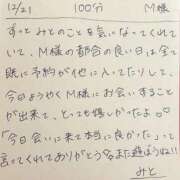 12/21 100分 M様
ずっとみとのことを気になってくれて
いて、M様の都合の良い日は全て
既に予約が他に入ってたりして、
今日ようやくM様にお会いすること
が出来て、とっても嬉しかったよ♡
「今日会いに来て本当に良かった」って
言ってくれてありがとう また遊ぼうね!!
みと